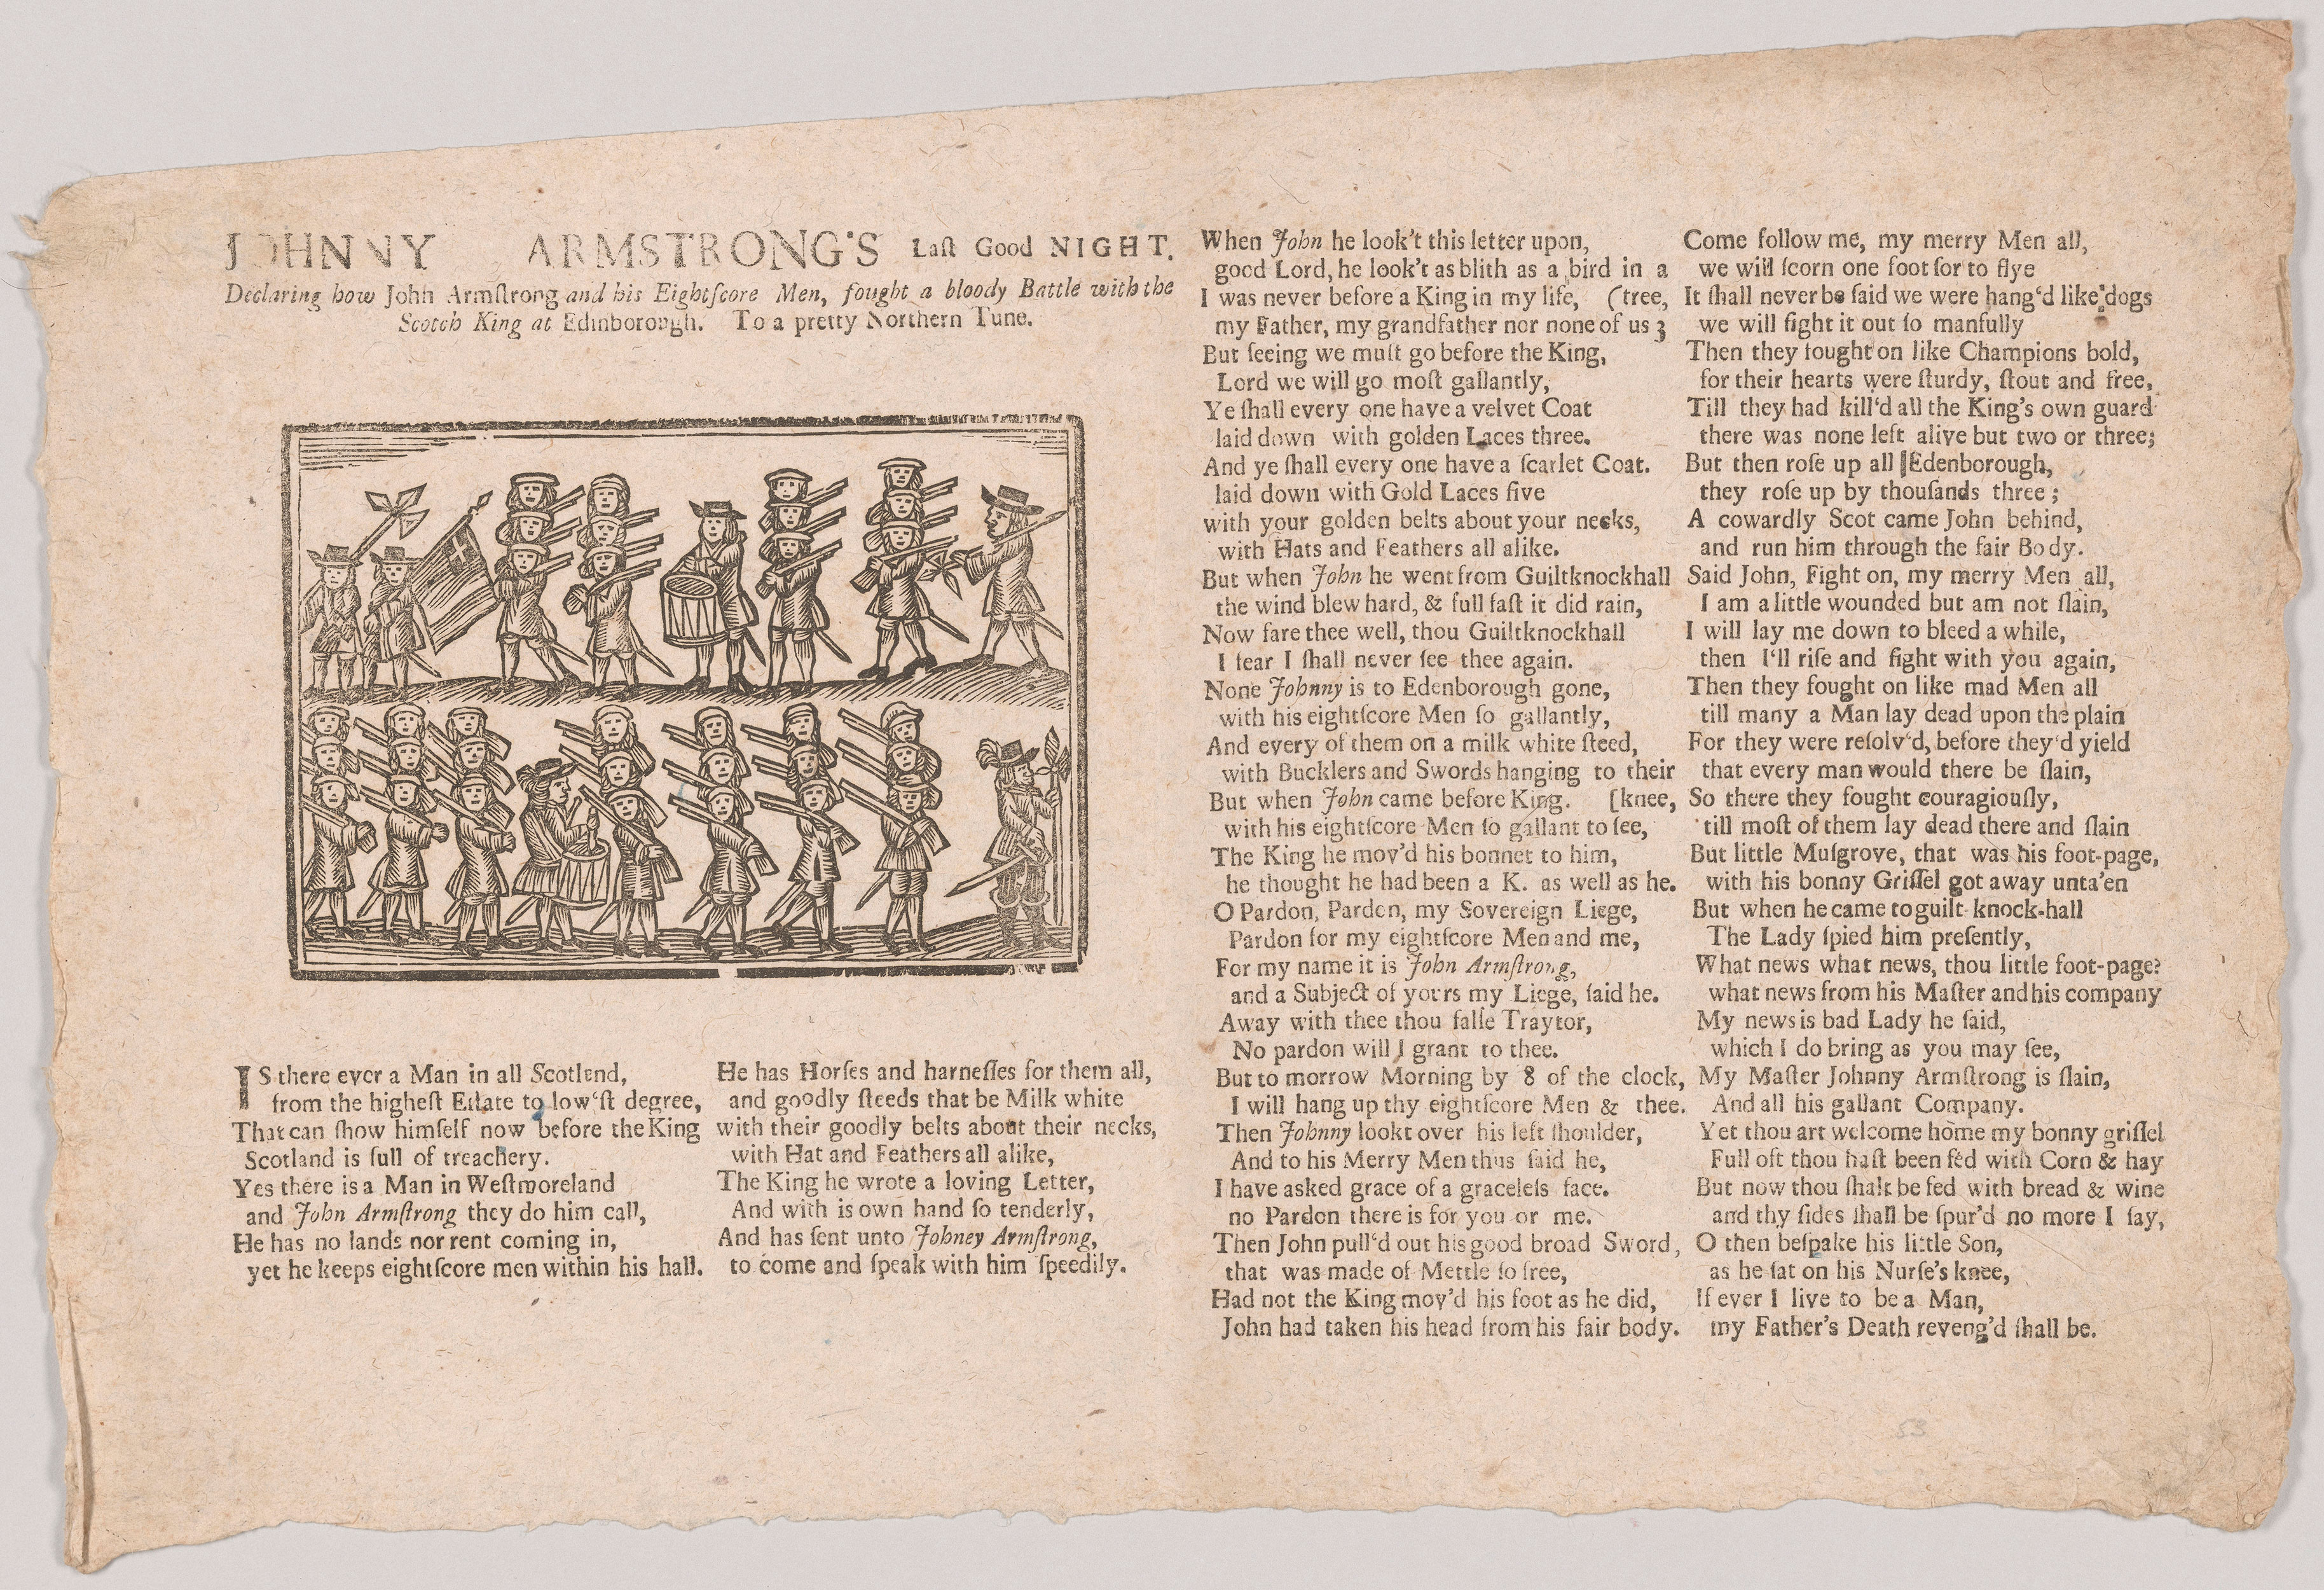 JOHNNY ARMSTRONG'S Laſt Good NIGHT.
Declaring how John Armſtrong and his Eightſcore Men, fought a bloody Battle with the
Scotch King at Edinborough. To a pretty Northern Tune.
IS there ever a Man in all Scotlend,
from the higheſt Eſtate to low'ſt degree,
That can ſhow himſelf now before the King
Scotland is full of treachery.
Yes there is a Man in Weſtmoreland
and John Armſtrong they do him call,
He has no lands nor rent coming in,
yet he keeps eightſcore men within his hall.
He has Horſes and harneſſes for them all,
and goodly ſteeds that be Milk white
with their goodly belts about their necks,
with Hat and Feathers all alike,
The King he wrote a loving Letter,
And with is own hand ſo tenderly,
And has ſent unto Johney Armſtrong,
to come and ſpeak with him ſpeedily.
When John he look't this letter upon,
good Lord, he look't as blith as a bird in a
I was never before a King in my life, (tree,
my Father, my grandfather nor none of us 3
But ſeeing we muſt go before the King,
Lord we will go moſt gallantly,
Ye ſhall every one have a velvet Coat
laid down with golden Laces three.
And ye ſhall every one have a ſcarlet Coat.
laid down with Gold Laces five
with your golden belts about your necks,
with Hats and Feathers all alike.
But when John he went from Guiltknockhall
the wind blew hard, & full faſt it did rain,
Now fare thee well, thou Guiltknockhall
I fear I ſhall never ſee thee again.
None Johnny is to Edenborough gone,
with his eightſcore Men ſo gallantly,
And every of them on a milk white ſteed,
with Bucklers and Swords hanging to their
But when John came before King. [knee,
with his eightſcore Men ſo gallant to ſee,
The King he mov'd his bonnet to him,
he thought he had been a K. as well as he.
O Pardon, Parden, my Sovereign Liege,
Pardon for my eightſcore Men and me,
For my name it is John Armſtrong,
and a Subject of yours my Liege, ſaid he.
Away with thee thou falſe Traytor,
No pardon will I grant to thee.
But to morrow Morning by 8 of the clock,
I will hang up thy eightſcore Men & thee.
Then Johnny lookt over his left ſhoulder,
And to his Merry Men thus ſaid he,
I have asked grace of a graceleſs face.
no Pardon there is for you or me.
Then John pull'd out his good broad Sword,
that was made of Mettle ſo free,
Had not the King mov'd his foot as he did,
John had taken his head from his fair body.
Come follow me, my merry Men all,
we will ſcorn one foot for to flye
It ſhall never be ſaid we were hang'd like dogs
we will fight it out ſo manfully
Then they fought on like Champions bold,
for their hearts were ſturdy, ſtout and free,
Till they had kill'd all the King's own guard
there was none left alive but two or three;
But then roſe up all Edenborough,
they roſe up by thouſands three;
A cowardly Scot came John behind,
and run him through the fair Body.
Said John, Fight on, my merry Men all,
I am a little wounded but am not ſlain,
I will lay me down to bleed a while,
then I'll riſe and fight with you again,
Then they fought on like mad Men all
till many a Man lay dead upon the plain
For they were reſolv'd, before they'd yield
that every man would there be ſlain,
So there they fought couragiouſly,
till moſt of them lay dead there and ſlain
But little Muſgrove, that was his foot-page,
with his bonny Griſſel got away unta'en
But when he came to guilt-knock-hall
The Lady ſpied him preſently,
What news what news, thou little foot-page?
what news from his Maſter and his company
My news is bad Lady he ſaid,
which I do bring as you may ſee,
My Maſter Johnny Armſtrong is ſlain,
And all his gallant Company.
Yet thou art welcome home my bonny griſſel
Full oft thou haſt been fed with Corn & hay
But now thou ſhalt be fed with bread & wine
and thy ſides ſhall be ſpur'd no more I ſay,
O then beſpake his little Son,
as he ſat on his Nurſe's knee,
If ever I live to be a Man,
my Father's Death reveng'd ſhall be.
53